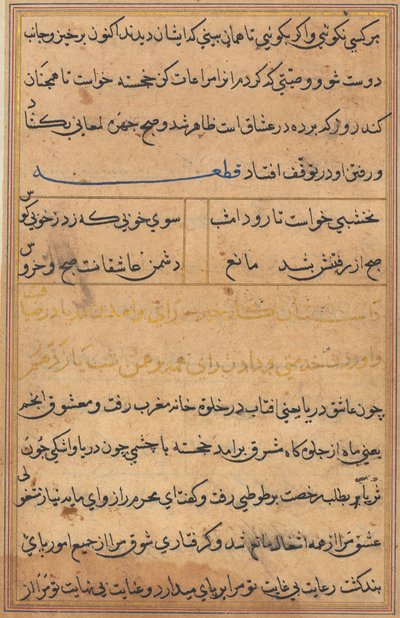 برکسی نکوئی و اکر بکوئی تا همان بینی که ایشان دیدند اکنون برخیز و جانب
دوست شو و وصیتی که کردم انرا مراعات کن خجسته خواست تا همچنان
کند روز که پرده در عشاق است ظاهر شد و صبح چهره لمعانی بکشاد
و رفتن او در توقف افتاد قطعه
نخشبی خواست تا رود امشب سوی خوبی که زد ز خوبی کوس
صبح از رفتنش بشد مانع دشمن عاشقانست صبح و خروس
داستان رای
و دادن رای
چون عاشق دریا یعنی افتاب در خلوة خانه مغرب رفت و معشوق انجم
یعنی ماه از جلوه کاه مشرق برامد خجسته با چشمی چون دریا و اشکی چون
ثریا بطلب رخصت بر طوطی رفت و کفت ای محرم راز و ای مایه نیاز شغولی
عشق مرا از همه اشغال مانع شد و کرفتاری شوق مرا از جمیع امور پای
بند کشت رعایت بی غایت تو مرا بر پای میدارد و عنایت بی نهایت تو مرا از